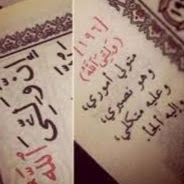 إِنَّ وَلِـِّۧيَ
الله
[١٩٦]
(وَلِـِّۧيَ اللَّهُ)
متولي أموري،
وهو نصيري،
وعليه متكلي،
وإليه ألجأ.